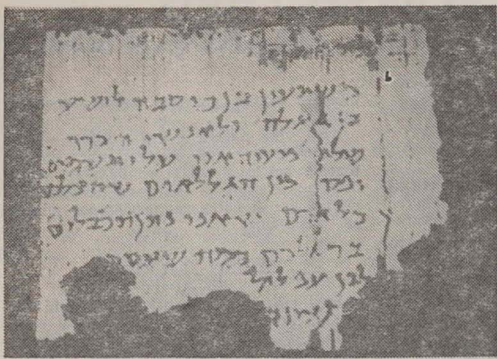 משמעון בן כוסבה לישע
בן גלגלה ולאנשי הכרך
שלום מעיד אני עלי תשמים
יפסד מן הגללאים שהצלכם
כל אדם שאני נתן תכבלים
ברגלכם כמה שעסת
לבן עפלול